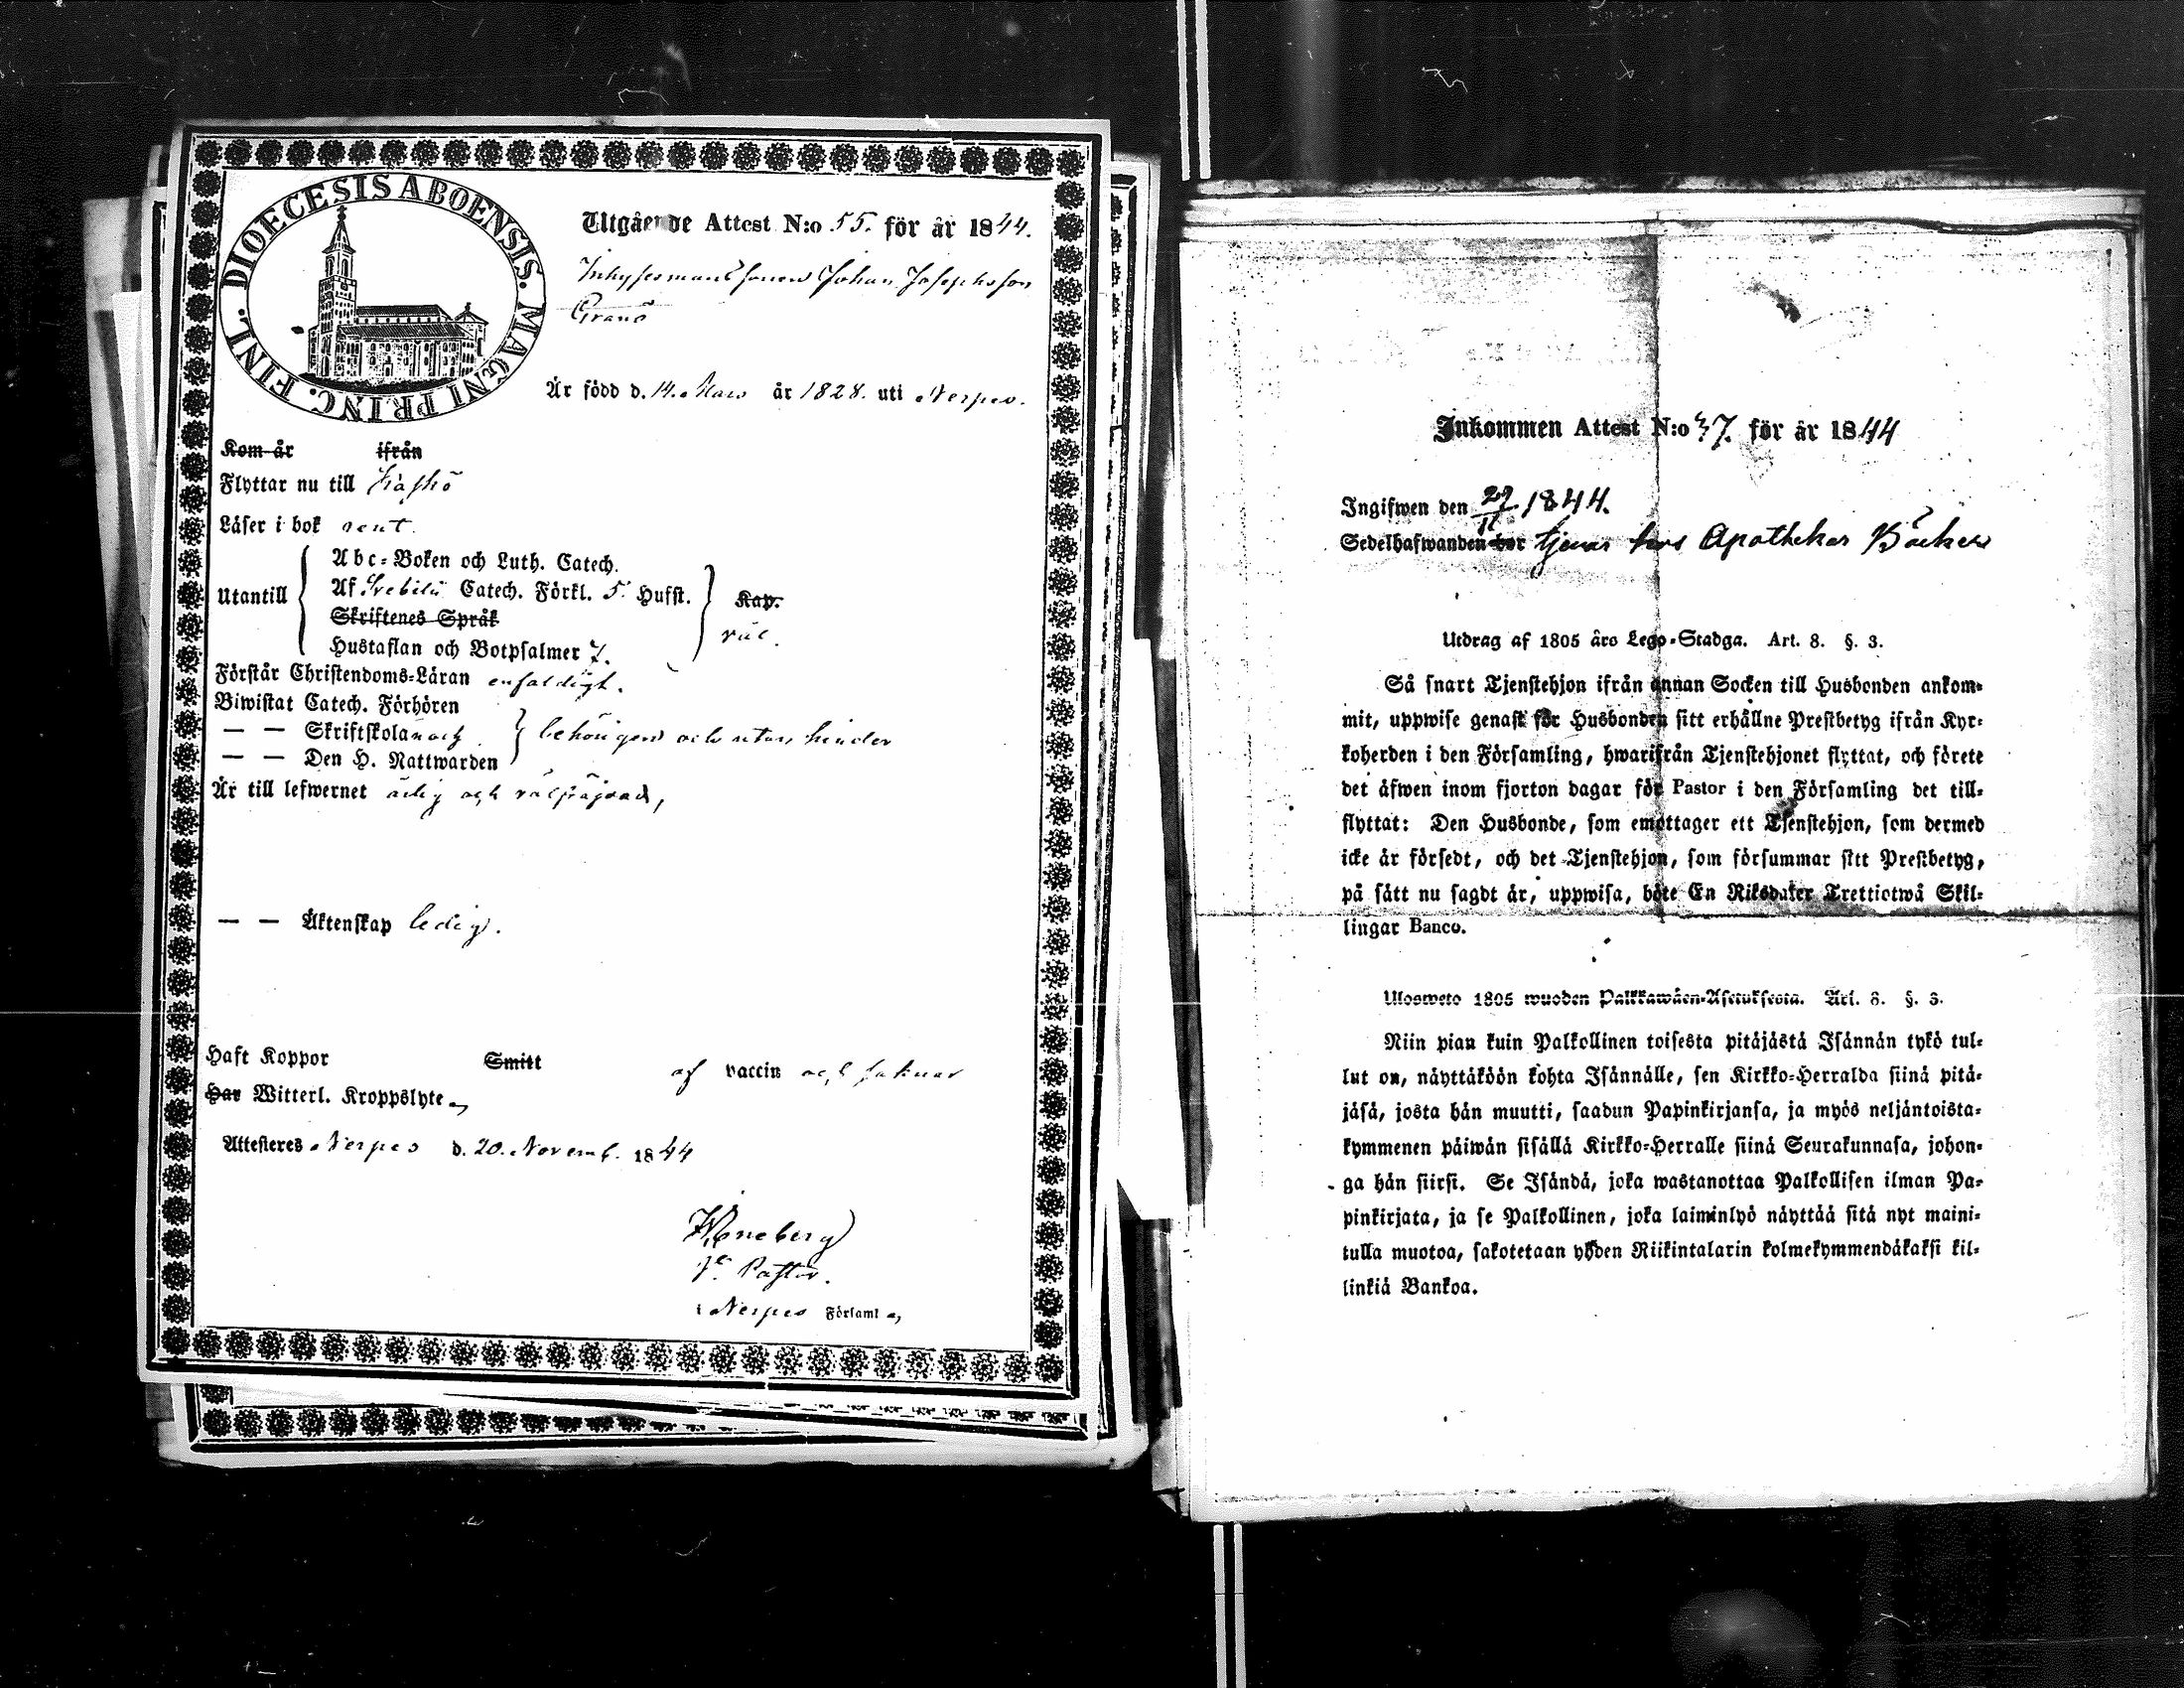 DIOECESIS ABOENSIS. MAGNI PRINC. FINL.
Utgående Attest N:o 55. för år 1844.
Inhysesmans sonen Johan Josephsson
Granö
Är född d. 14. Mars år 1828. uti Nerpes.
Kom år ifrån
Flyttar nu till Kaskö
Läser i bok rent.
Utantill
Abc-Boken och Luth. Catech.
Af Svebilii Catech. Förkl. 5. Hufst.
Kap.
Skriftenes Språk
väl.
Hustaflan och Botpsalmer 7.
Förstår Christendoms-Läran enfaldigt.
Biwistat Catech. Förhören
— — Skriftskolan och
behörigen och utan hinder
— — Den H. Nattwarden
Är till lefwernet ärlig och välfräjdad,
— — Äktenskap ledig.
Haft Koppor Smitt af vaccin och saknar
Har Witterl. Kroppslyte
Attesteres Nerpes d. 20. Novemb. 1844
Pastor.
i Nerpes Församl
Inkommen Attest N:o 37. för år 1844
Ingifwen den 27/11 1844.
Sedelhafwanden bor tjenar hos Apothekar Bäcker
Utdrag af 1805 års Lego-Stadga. Art. 8. §. 3.
Så snart Tjenstehjon ifrån annan Socken till Husbonden ankom-
mit, uppwise genast för Husbonden sitt erhållne Prestbetyg ifrån Kyr-
koherden i den Församling, hwarifrån Tjenstehjonet flyttat, och förete
det äfwen inom fjorton dagar för Pastor i den Församling det till-
flyttat: Den Husbonde, som emottager ett Tjenstehjon, som dermed
icke är försedt, och det Tjenstehjon, som försummar sitt Prestbetyg,
på sätt nu sagdt är, uppwisa, böte En Riksdaler Trettiotwå Skil-
lingar Banco.
Ulosweto 1805 wuoden Palkkawäen-Asetuksesta. Art. 8. §. 3.
Niin pian kuin Palkollinen toisesta pitäjästä Isännän tykö tul-
lut on, näyttäköön kohta Isännälle, sen Kirkko-Herralda siinä pitä-
jäsä, josta hän muutti, saadun Papinkirjansa, ja myös neljäntoista-
kymmenen päiwän sisällä Kirkko-Herralle siinä Seurakunnasa, johon-
ga hän siirsi. Se Isändä, joka wastanottaa Palkollisen ilman Pa-
pinkirjata, ja se Palkollinen, joka laiminlyö näyttää sitä nyt maini-
tulla muotoa, sakotetaan yhden Riikintalarin kolmekymmendäkaksi kil-
linkiä Bankoa.